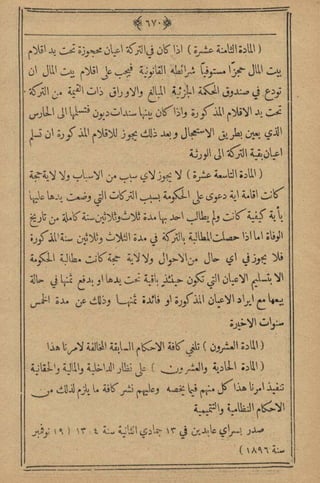 ﴿ ٦٧٠ ﴾
( المادة الثامنة عشرة ) اذا كان فى التركة اعيان محجوزة تحت يد اقلام
بيت المال حجزًا مستوفيًا شرائطه القانونية فيجب على اقلام بيت المال ان
تودع فى صندوق المحكمة الجزئية المبالغ والاوراق ذات القيمة من التركة
تحت يد الاقلام المذكورة واذا كان بينها سندات ديون فتسلمها الى الحارس
الذي يعين بطريق الاستعجال وبعد ذلك يجوز للاقلام المذكورة ان تسلم
اعيان بقية التركة الى الورثة
( المادة التاسعة عشرة ) لا يجوز لاي سبب من الاسباب ولا لاية حجة
كانت اقامة اية دعوى على الحكومة بسبب التركات التي وضعت يدها عليها
بأية كيفية كانت ولم يطالب احد بها مدة ثلاث وثلاثين سنة كاملة من تاريخ
الوفاة اما اذا حصلت المطالبة بالتركة في مدة الثلاث وثلاثين سنة المذكورة
فلا يجوز في اي حال من الاحوال ولا لاية حجة كانت مطالبة الحكومة
الا بتسليم الاعيان التي تكون حينئذ باقية تحت يدها او بدفع ثمنها في حالة
بيعها مع ايراد الاعيان المذكورة او فائدة ثمنها وذلك عن مدة الخمس
سنوات الاخيرة
( المادة العشرون ) تلغى كافة الاحكام السابقة المخالفة لامرنا هذا
( المادة الحادية والعشرون ) على نظار الداخلية والمالية والحقانية
تنفيذ امرنا هذا كل منهم فيما يخصه وعليهم نشر كافة ما يلزم لذلك من
الاحكام النظامية والتتميمية
صدر بسراي عابدين في ١٣ جمادي الثانية سنة ١٣٠٤ ( ١٩ نوفمبر
سنة ١٨٩٦ )